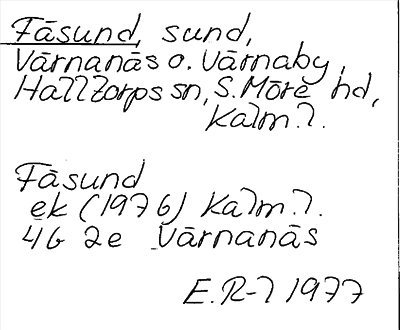 Fäsund, sund,
Värnanäs o. Värnaby,
Halltorps sn, S. Möre hd,
Kalm. l.
Fäsund
ek (1976) Kalm. l.
4G 2e Värnanäs
E. R-l 1977